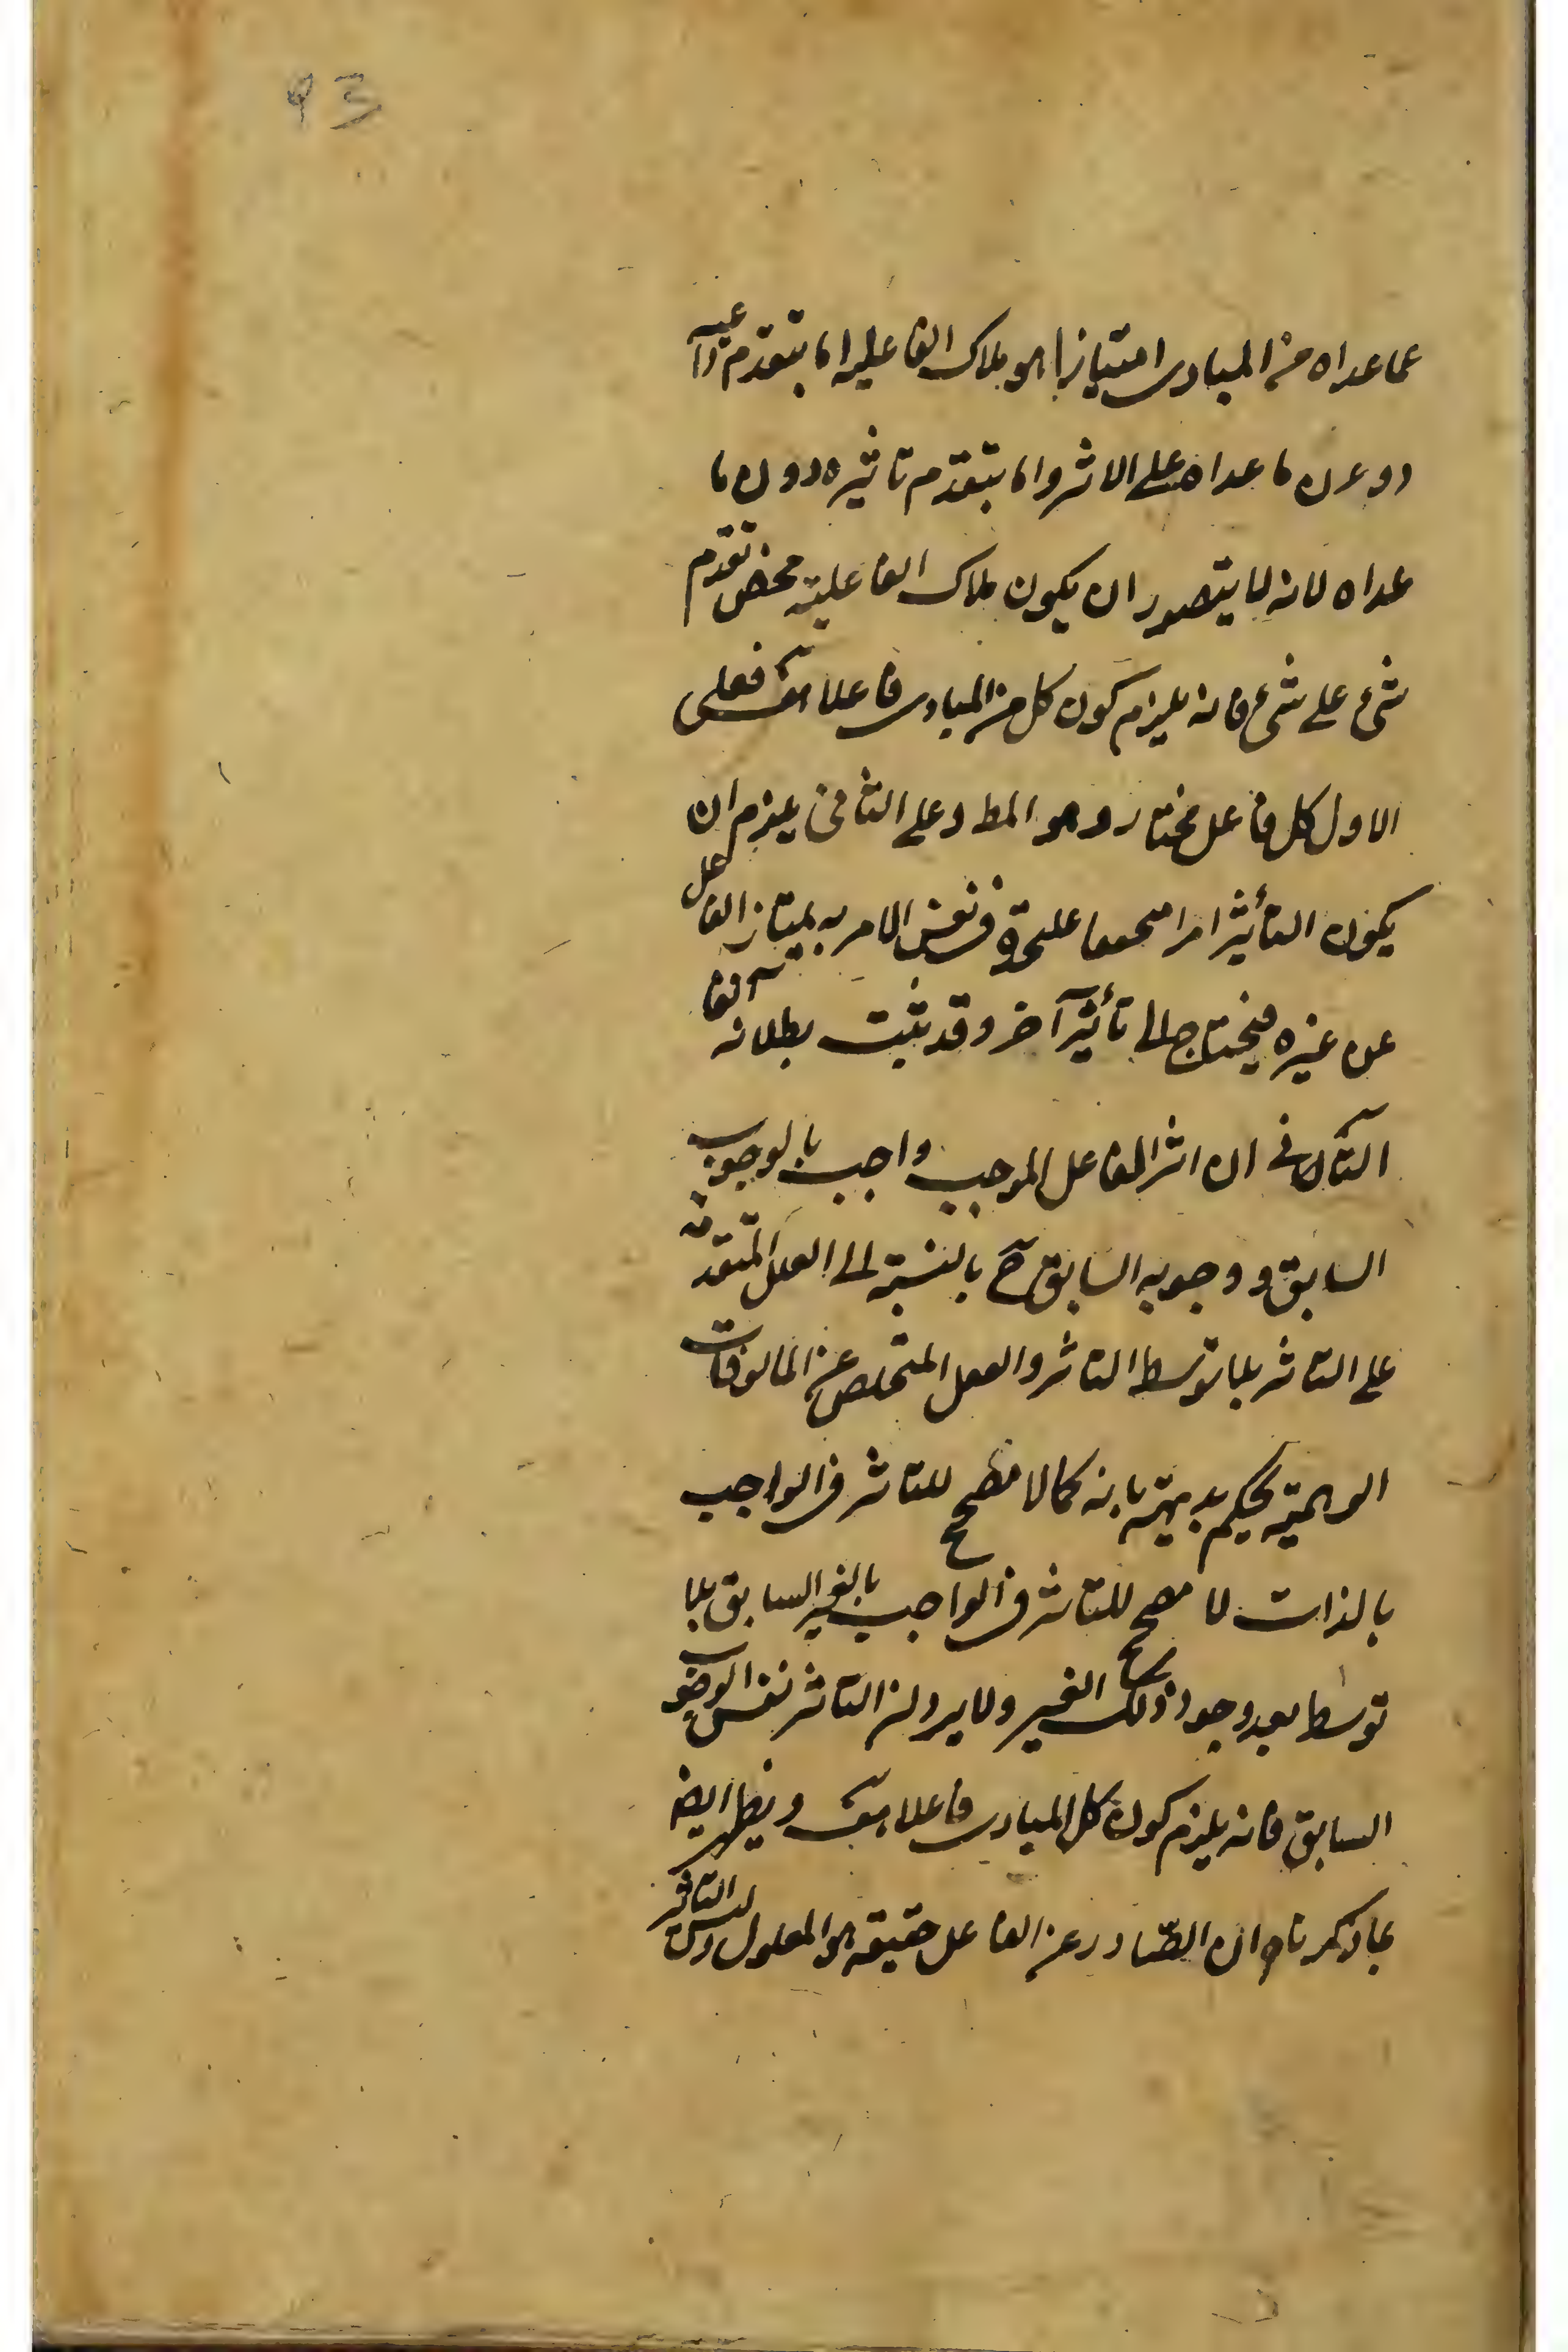 ٩٣
عما عداه من المبادى امتيازا هو ملاك الفاعليه اما بتقدم داعيه
دون ما عداه على الاثر واما بتقدم تاثيره دون ما
عداه لانه لا يتصور ان يكون ملاك الفاعلية محض تقدم
شىء على شىء فانه يلزم كون كل من المبادى فاعلا فعلى
الاول كل فاعل مختار وهو المط وعلى الثانى يلزم ان
يكون التأثير امرا متحققا عليحدة فى نفس الامر به يمتاز الفاعل
عن غيره فيحتاج الى تأثير آخر وقد ثبت بطلانه
الثانى ان اثر الفاعل الموجب واجب بالوجوب
السابق ووجوبه السابق ح بالنسبة الى العلل المتقدمة
على التاثر بلا توسط التاثر والعقل المتخلص عن المالوفات
الوهمية يحكم بديهته بانه كما لا مصحح للتاثر فى الواجب
بالذات لا مصحح للتاثر فى الواجب بالغير السابق بلا
توسط بعد وجود ذلك الغير ولا يرد ان التاثر نفس الوجوب
السابق فانه يلزم كون كل المبادى فاعلا ويظهر ايضا
بما ذكرنا ان الصادر عن الفاعل حقيقة هو المعلول وليس التاثر